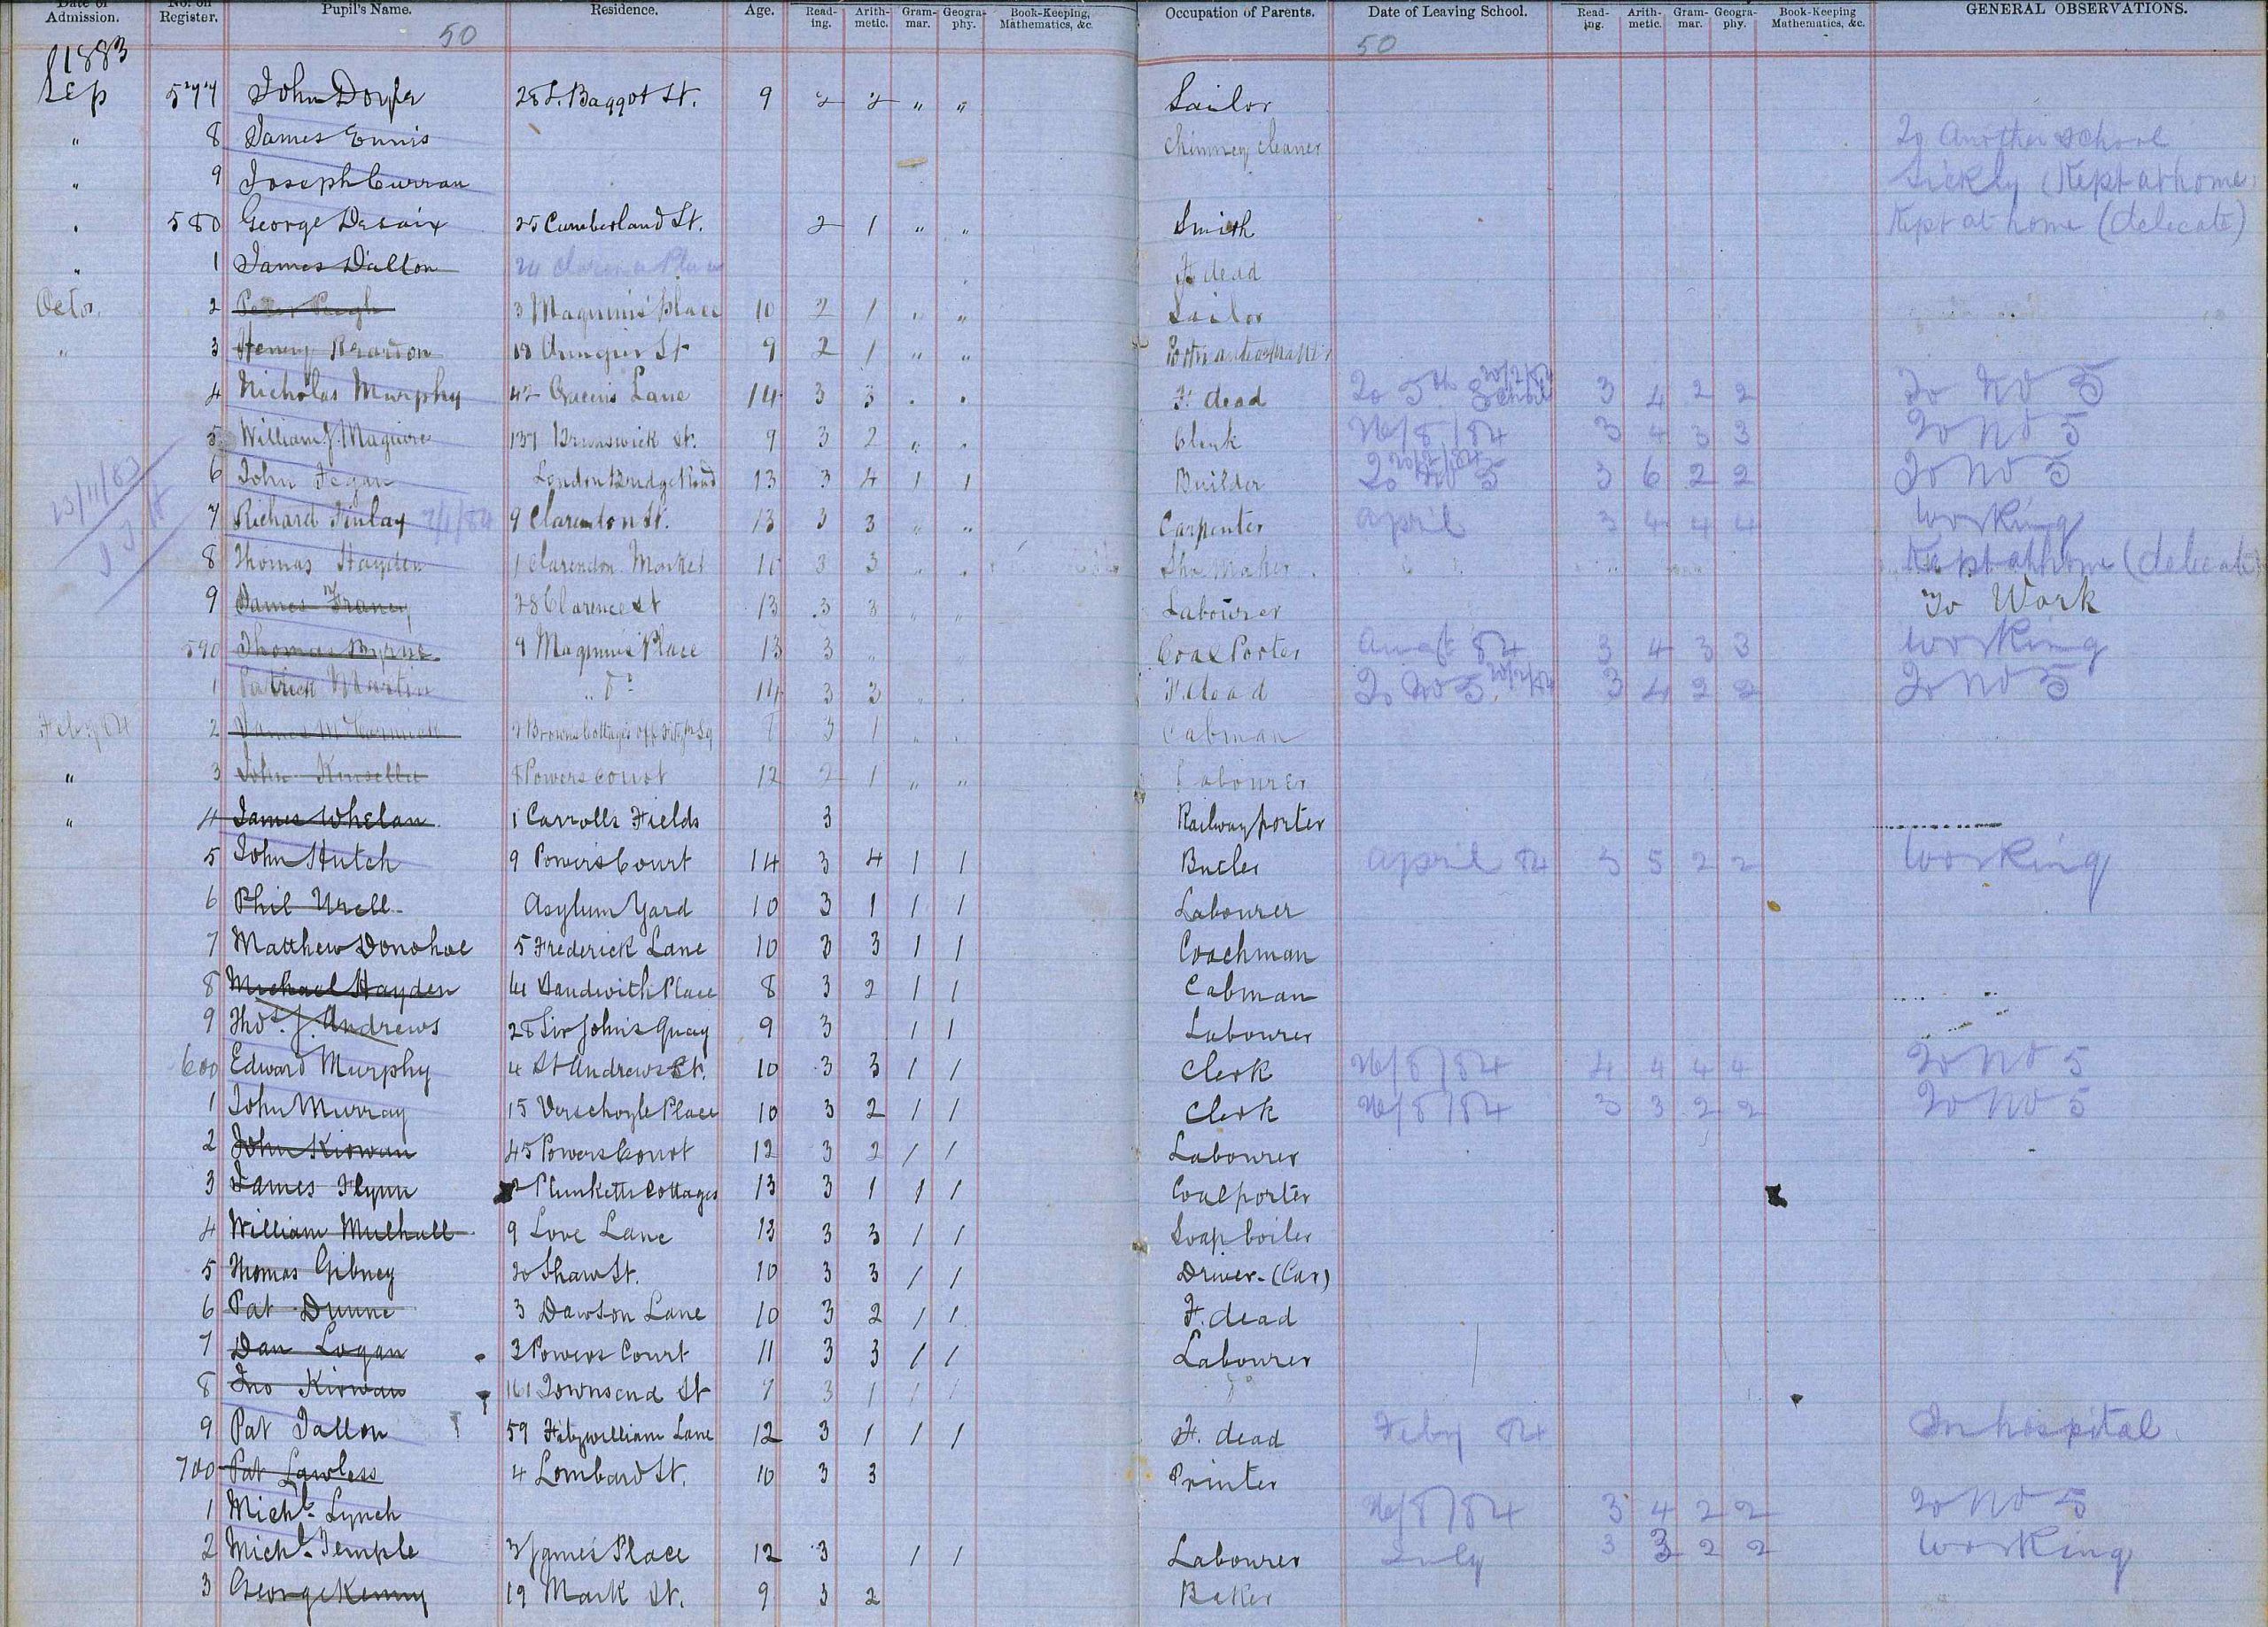 Date of Admission. No. on Register. Pupil's Name. Residence. Age. Read-ing. Arith-metic. Gram-mar. Geogra-phy. Book-Keeping, Mathematics, &c. Occupation of Parents. Date of Leaving School. Read-ing. Arith-metic. Gram-mar. Geogra-phy. Book-Keeping Mathematics, &c. GENERAL OBSERVATIONS.
50 50
1883
Sep 577 John Doyle 28 L. Baggot St. 9 2 2 " " Sailor
" 8 James Ennis Chimney cleaner To Another School
" 9 Joseph Curran Sickly (Kept at home
" 580 George Desaix 25 Cumberland St. 2 1 " " Smith Kept at home (delicate)
" 1 James Dalton F dead
Octor. 2 3 Maginnis' Place 10 2 1 " " Sailor
" 3 Henry 9 2 1 " "
4 Nicholas Murphy 42 Queens Lane 14 3 3 . . F. dead To 5th School 20/2/84 3 4 2 2 To No 5
5 William J. Maguire 137 Brunswick St. 9 3 2 " . Clerk 26/8/84 3 4 3 3 To No 5
23/11/83
6 John Fegan London Bridge Road 13 3 4 1 1 Builder To No 5 3 6 2 2 To No 5
7 Richard Finlay 7/1/84 9 Clarendon St. 13 3 3 " " Carpenter April 3 4 4 4 Working
8 Thomas Hayden 1 Clarendon Market 11 3 3 . . Shoe Maker Kept at home (delicate
9 James Franey 28 Clarence St 13 3 3 " " Labourer To Work
590 Thomas Byrne 9 Maginnis Place 13 3 " " Coal Porter 84 3 4 3 3 Working
1 Patrick Martin " Do 14 3 3 . . F. dead To No 5. 20/2/84 3 4 2 2 To No 5
Feby 84 2 James McCormick Browns Cottages off Fitzm Sq 3 1 . . Cabman
" 3 John Kinsella Powers Court 12 2 1 " " Labourer
" 4 James Whelan 1 Carrolls Fields 3 Railway porter
5 John Hutch 9 Powers Court 14 3 4 1 1 Butler April 84 3 5 2 2 Working
6 Phil Urell Asylum Yard 10 3 1 1 1 Labourer
7 Matthew Donohoe 5 Frederick Lane 10 3 3 1 1 Coachman
8 Michael Hayden Sandwith Place 8 3 2 1 1 Cabman
9 Thos. J. Andrews 28 Sir John's Quay 9 3 1 1 Labourer
600 Edward Murphy 4 St Andrews St. 10 3 3 1 1 Clerk 26/8/84 4 4 4 4 To No 5
1 John Murray 15 Verschoyle Place 10 3 2 1 1 Clerk 26/8/84 3 3 2 2 To No 5
2 John Kirwan 45 Powers Court 12 3 2 1 1 Labourer
3 James Flynn Plunketts Cottages 13 3 1 1 1 Coal porter
4 William Mulhall 9 Love Lane 13 3 3 1 1 Soap boiler
5 Thomas Gibney 20 Shaw St. 10 3 3 1 1 Driver-(Car)
6 Pat Dunne 3 Dawson Lane 10 3 2 1 1 F. dead
7 Dan Logan 3 Powers Court 11 3 3 1 1 Labourer
8 Jno Kirwan 161 Townsend St 7 3 1 1 1 Do
9 Pat Tallon 59 Fitzwilliam Lane 12 3 1 1 1 F. dead Feby 84 In hospital.
700 Pat Lawless 4 Lombard St. 10 3 3 Printer
1 Michl. Lynch 26/8/84 3 4 2 2 To No 5
2 Michl. Temple 3 James Place 12 3 1 1 Labourer July 3 3 2 2 Working
3 George Kenny 19 Mark St. 9 3 2 Baker